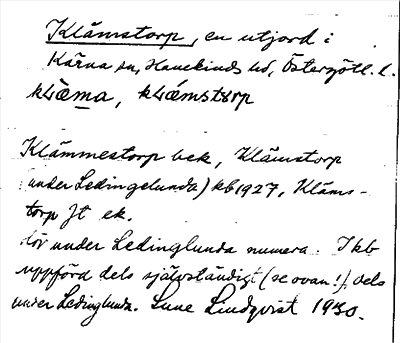 Klämstorp, en utjord i
Kärna sn, Hanekinds hd, Östergötl. l.
klæma, klæmstorp
Klämmestorp bek, Klämstorp
(under Ledingelunda) kb 1927, Kläms-
torp Jt ek.
hör under Ledinglunda numera. I kb
uppförd dels självständigt (se ovan!), dels
under Ledinglunda. Sune Lindqvist 1930.